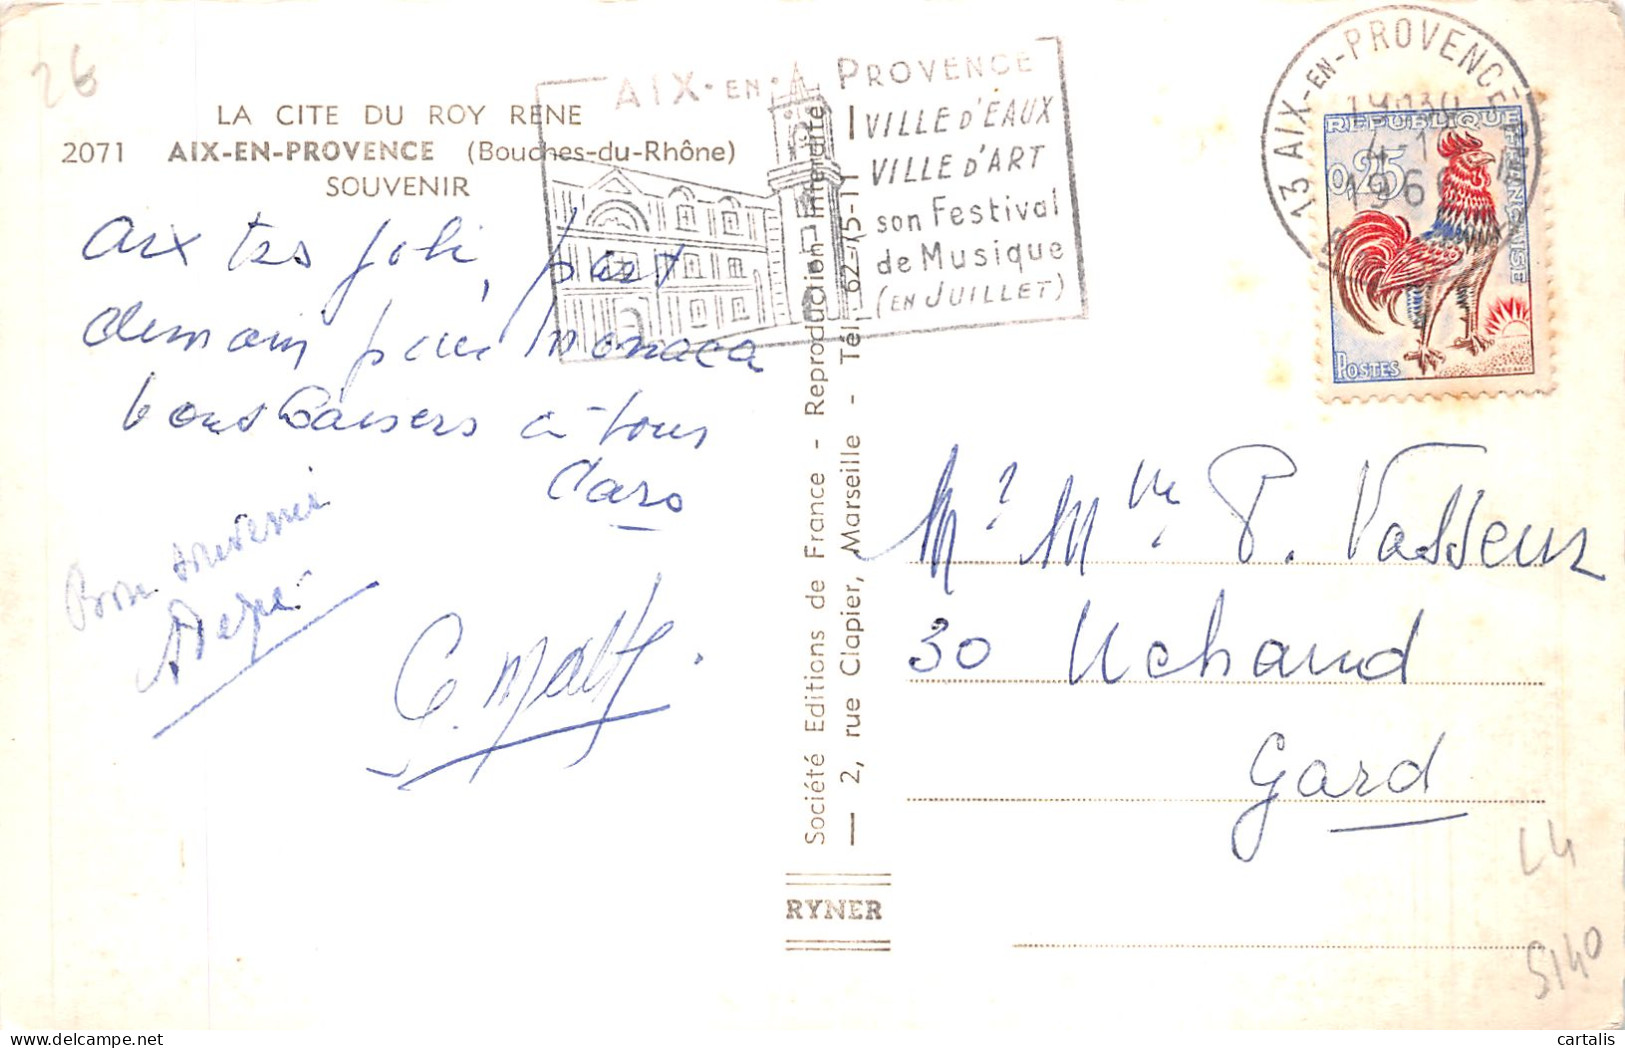 26
LA CITE DU ROY RENE
2071 AIX-EN-PROVENCE (Bouches-du-Rhône)
SOUVENIR
AIX-EN-PROVENCE
VILLE D'EAUX
VILLE D'ART
son Festival
de Musique
(EN JUILLET)
13 AIX-EN-PROVENCE
REPUBLIQUE FRANÇAISE
0,25
POSTES
Aix tres joli, part
demain pour Monaco
bons baisers à tous
Caro
Bon souvenir
Société Editions de France - Reproduction Interdite
— 2, rue Clapier, Marseille - Tél. 62-75-11
RYNER
Mr Mme P. Vasseur
30 Uchaud
Gard
L4
5140
cartalis